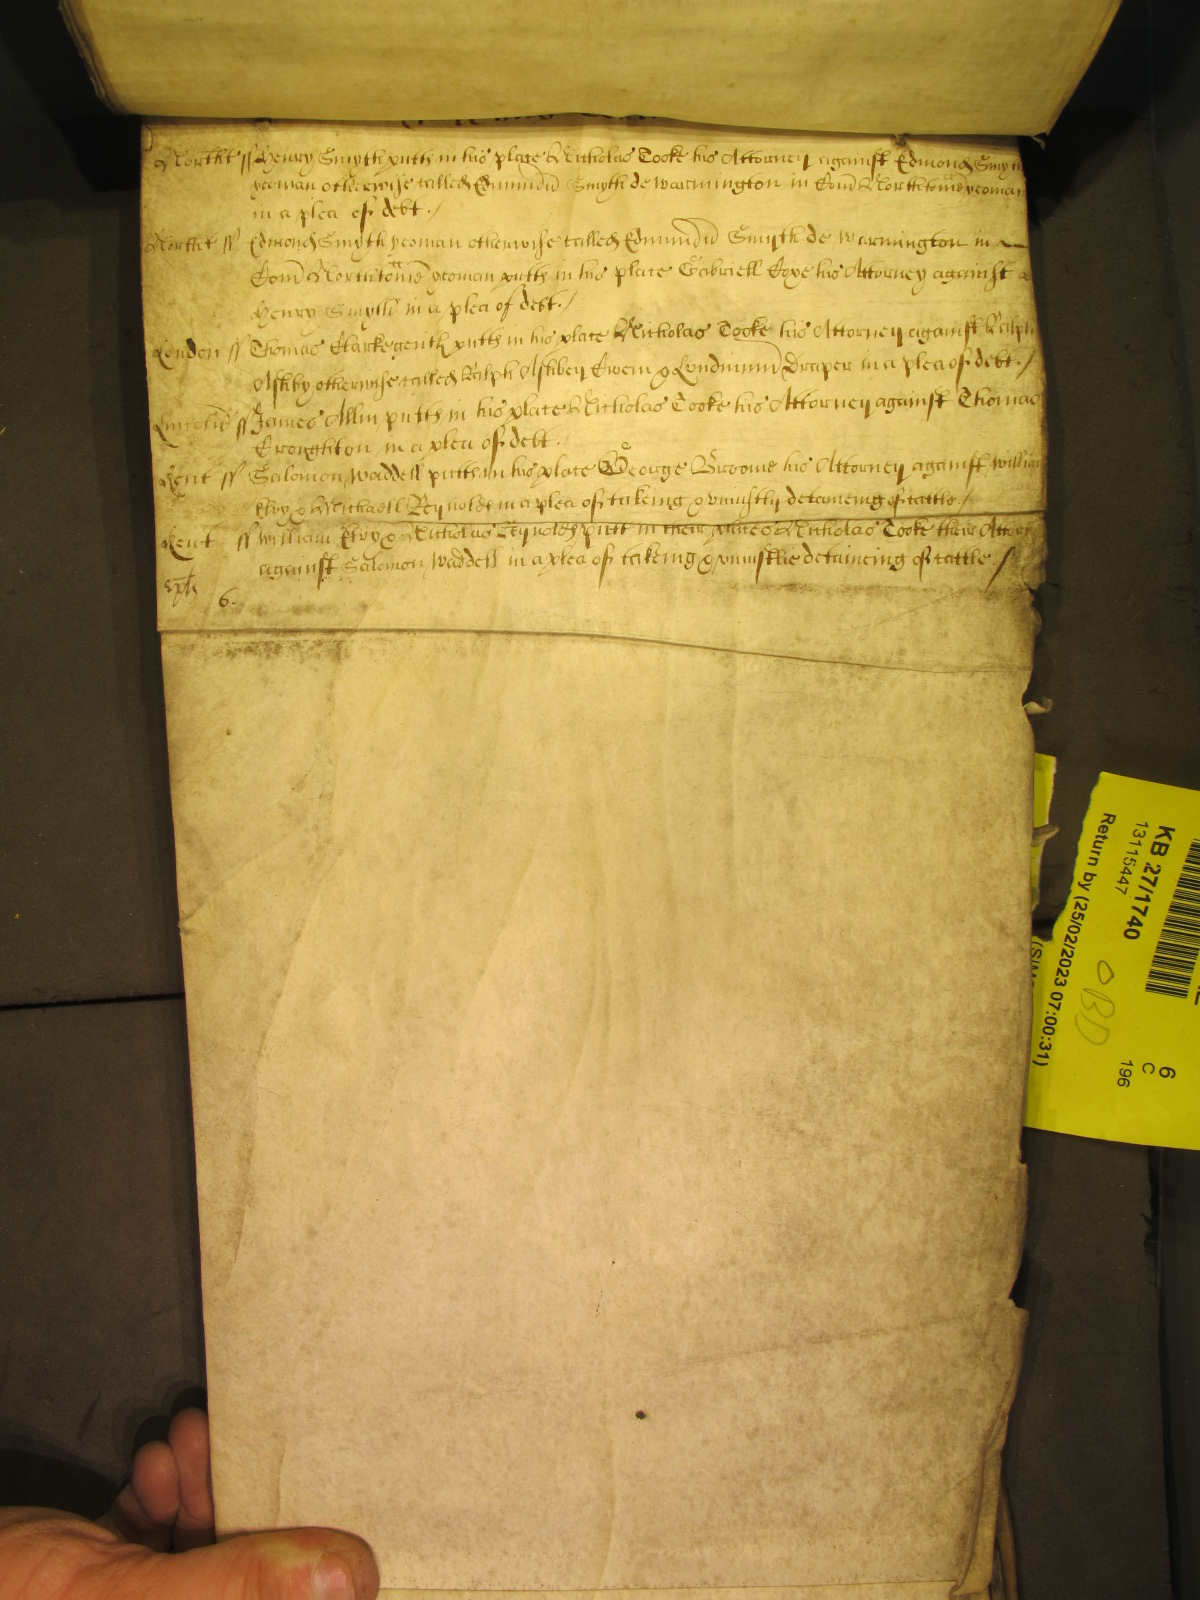 Northt ss Henry Smyth putth in his place Nicholas Cooke his Attorney against Edmond Smyth
yeoman otherwise called Edmundū Smyth de Warmington in Com Northtoñ yeoman
in a plea of debt./
Northt ss Edmond Smyth yeoman otherwise called Edmundū Smyth de Warmington in
Com Northtoñ yeoman putth in his place Gabriell Coxe his Attorney against
Henry Smyth in a plea of debt./
London ss Thomas Clarke gentl putth in his place Nicholas Cooke his Attorney against Ralph
Ashby otherwise called Ralph Ashbey Civem & Londinium Draper in a plea of debt./
ss James Allin putth in his place Nicholas Cooke his Attorney against Thomas
Croughton in a plea of debt./
Kent ss Salomon Waddell putth in his place George Broome his Attorney against William
& Michaell Reynolds in a plea of taking & uniustly detaineing of cattle./
Kent ss William & Nicholas Reynolds putt in their places Nicholas Cooke their Attorn
against Salomon Waddell in a plea of taking & uniustlie detaineing of cattle./
6.
KB 27/1740
13115447
Return by (25/02/2023 07:00:31)
6
C
196